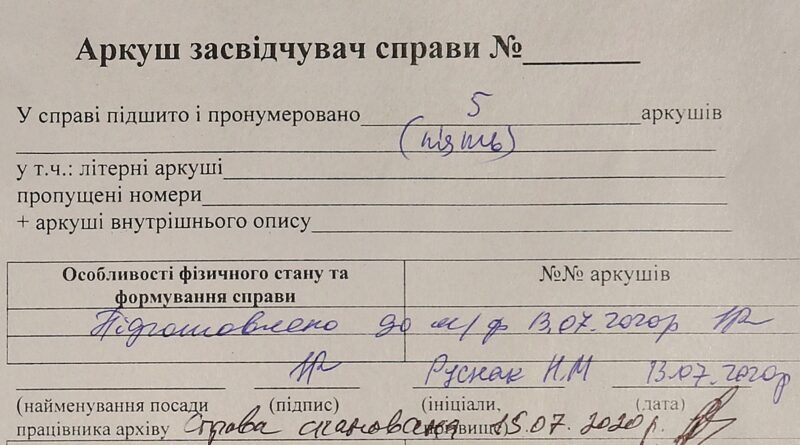 Аркуш засвідчувач справи №______
У справі підшито і пронумеровано 5 аркушів
(пять)
у т.ч.: літерні аркуші
пропущені номери
+ аркуші внутрішнього опису
Особливості фізичного стану та формування справи
№№ аркушів
Підготовлено до м/ф 13.07.2020р
Руснак Н.М 13.07.2020р
(найменування посади (підпис) (ініціали, (дата)
працівника архіву Справа сканована прізвище) 15.07.2020р.